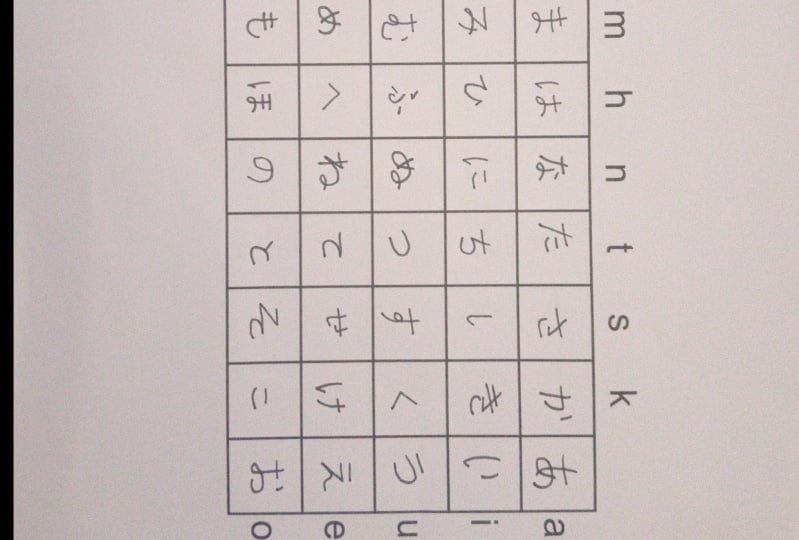 m h n t s k
ま は な た さ か あ a
み ひ に ち し き い i
む ふ ぬ つ す く う u
め へ ね て せ け え e
も ほ の と そ こ お o